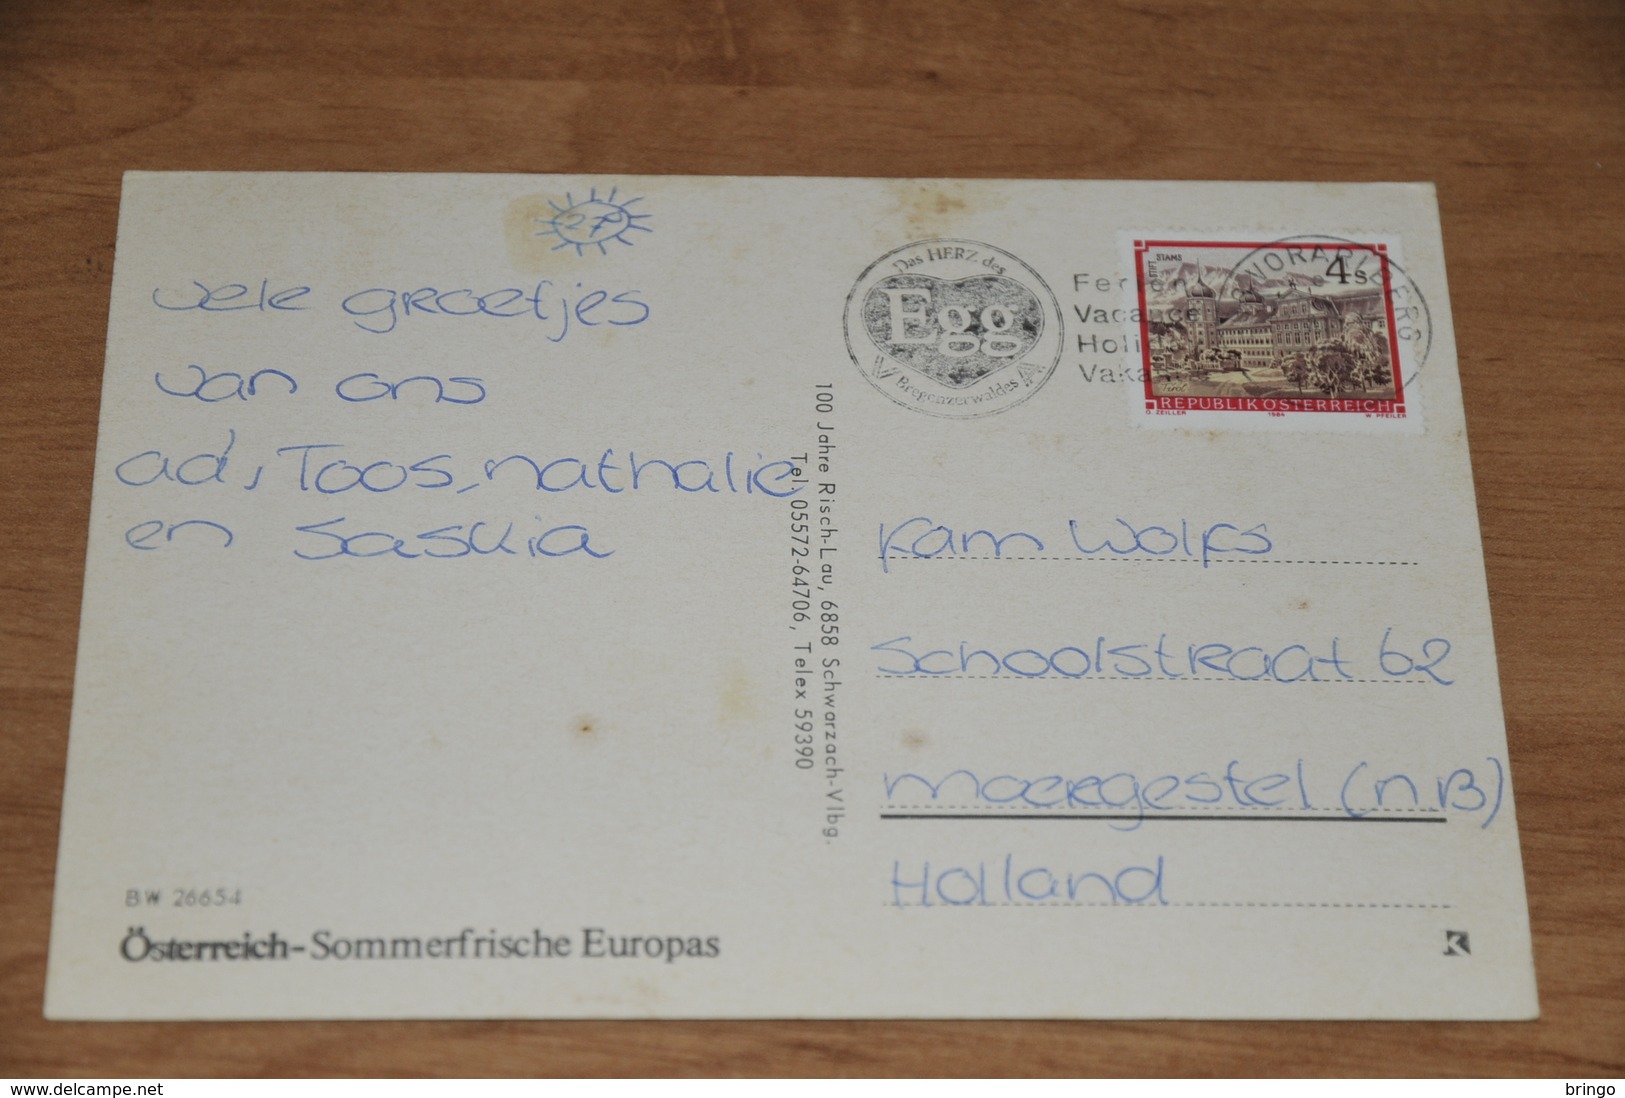 27
vele groetjes
van ons
ad, Toos, nathalie
en Saskia
BW 26654
Österreich-Sommerfrische Europas
100 Jahre Risch-Lau, 6858 Schwarzach-Vlbg.
Tel. 05572-64706, Telex 59390
Das HERZ des
Egg
Bregenzerwaldes
Ferien
Vacance
Holi
Vaka
VORARLBERG
STIFT STAMS
4s
Tirol
REPUBLIK ÖSTERREICH
O. ZEILLER 1984 W. PFEILER
Fam Wolfs
Schoolstraat 62
Moergestel (n.B)
Holland
K
www.delcampe.net
bringo